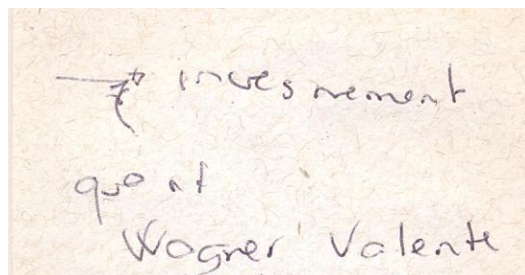 invesnement
quant
Wagner Valente